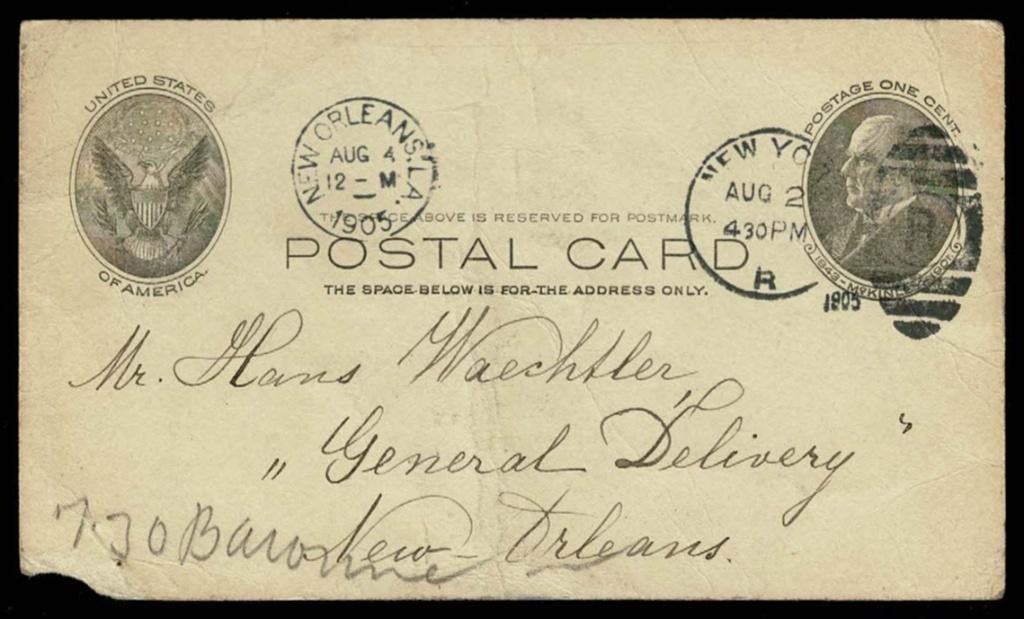 UNITED STATES
OF AMERICA.
NEW ORLEANS, LA.
AUG 4
12 - M
1905
NEW YO
AUG 2
4 30 PM
R
1905
POSTAGE ONE CENT.
1843 - McKINLEY - 1901
THE SPACE ABOVE IS RESERVED FOR POSTMARK.
POSTAL CARD
THE SPACE BELOW IS FOR THE ADDRESS ONLY.
Mr. Hans Waechtler,
„General Delivery"
New-Orleans.
730 Baronne